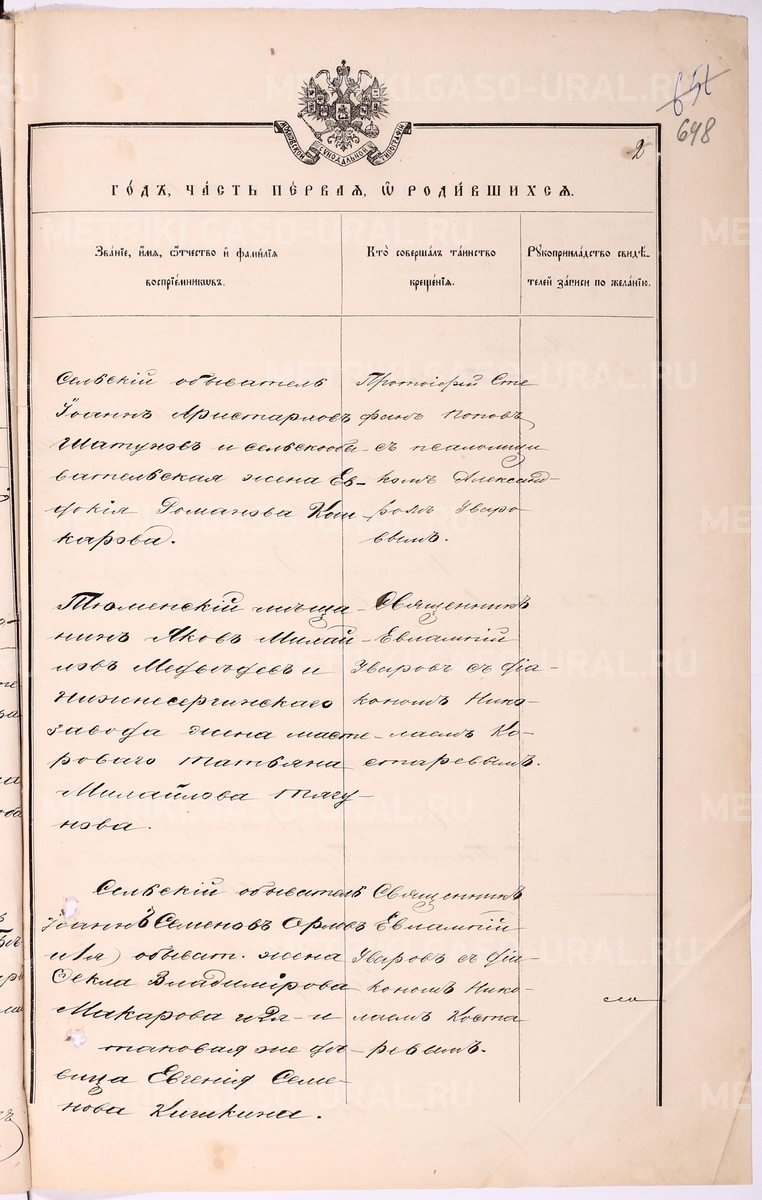 651
648
2
МОСКОВСКОЙ СѴНОДАЛЬНОЙ ТИПОГРАФІИ
ГОДЪ, ЧАСТЬ ПЕРВАЯ, Ѡ РОДИВШИХСЯ.
Званіе, имя, ѿчество и фамилія
воспріемникѡвъ.
Кто совершалъ таинство
крещенія.
Рукоприкладство свидѣ-
телей записи по желанію.
Сельскій обыватель
Іоаннъ Аристарховъ
Шатуновъ и сельскообы-
вательская жена Ев-
докія Романова Кош-
карова.
Протоіерей Сте
фанъ Поповъ
съ псаломщи
комъ Александ-
ромъ Уваро-
вымъ.
Тюменскій мѣща
нинъ Яковъ Михай
ловъ Медвѣдевъ и
Нижнесергинскаго
завода жена масте-
роваго Татьяна
Михайлова Тягу-
нова.
Священникъ
Евлампій
Уваровъ съ діа-
кономъ Нико-
лаемъ Ко-
старевымъ.
Сельскій обыватель
Іоаннъ Семеновъ Орловъ
и 1я) обыват. жена
Ѳекла Владимірова
Макарова и 2я - и
таковая же дѣ-
вица Евгенія Семе-
нова Кишкина.
Священникъ
Евлампій
Уваровъ съ діа-
кономъ Нико-
лаемъ Коста
ревымъ.
METRIKI.GASO-URAL.RU